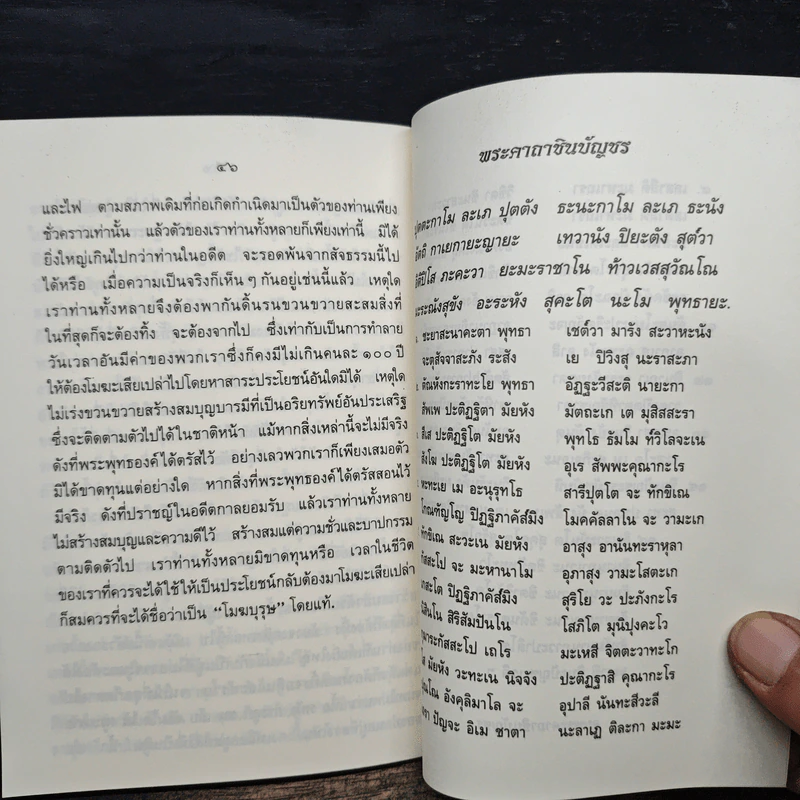 ๔๖
และไฟ ตามสภาพเดิมที่ก่อเกิดกำเนิดมาเป็นตัวของท่านเพียง
ชั่วคราวเท่านั้น แล้วตัวของเราท่านทั้งหลายก็เพียงเท่านี้ มิได้
ยิ่งใหญ่เกินไปกว่าท่านในอดีต จะรอดพ้นจากสัจธรรมนี้ไป
ได้หรือ เมื่อความเป็นจริงก็เห็น ๆ กันอยู่เช่นนี้แล้ว เหตุใด
เราท่านทั้งหลายจึงต้องพากันดิ้นรนขวนขวายสะสมสิ่งที่
ในที่สุดก็จะต้องทิ้ง จะต้องจากไป ซึ่งเท่ากับเป็นการทำลาย
วันเวลาอันมีค่าของพวกเราซึ่งก็คงมีไม่เกินคนละ ๑๐๐ ปี
ให้ต้องโมฆะเสียเปล่าไปโดยหาสาระประโยชน์อันใดมิได้ เหตุใด
ไม่เร่งขวนขวายสร้างสมบุญบารมีที่เป็นอริยทรัพย์อันประเสริฐ
ซึ่งจะติดตามตัวไปได้ในชาติหน้า แม้หากสิ่งเหล่านี้จะไม่มีจริง
ดังที่พระพุทธองค์ได้ตรัสไว้ อย่างเลวพวกเราก็เพียงเสมอตัว
มิได้ขาดทุนแต่อย่างใด หากสิ่งที่พระพุทธองค์ได้ตรัสสอนไว้
มีจริง ดังที่ปราชญ์ในอดีตกาลยอมรับ แล้วเราท่านทั้งหลาย
ไม่สร้างสมบุญและความดีไว้ สร้างสมแต่ความชั่วและบาปกรรม
ตามติดตัวไป เราท่านทั้งหลายมิขาดทุนหรือ เวลาในชีวิต
ของเราที่ควรจะได้ใช้ให้เป็นประโยชน์กลับต้องมาโมฆะเสียเปล่า
ก็สมควรที่จะได้ชื่อว่าเป็น “โมฆบุรุษ” โดยแท้.
พระคาถาชินบัญชร
ปุตตะกาโม ละเภ ปุตตัง ธะนะกาโม ละเภ ธะนัง
อัตถิ กาเยกายะญายะ เทวานัง ปิยะตัง สุต๎วา
อิติปิโส ภะคะวา ยะมะราชาโน ท้าวเวสสุวัณโณ
มะระณังสุขัง อะระหัง สุคะโต นะโม พุทธายะ.
ชะยาสะนาคะตา พุทธา เชต๎วา มารัง สะวาหะนัง
จะตุสัจจาสะภัง ระสัง เย ปิวิงสุ นะราสะภา
ตัณหังกะราทะโย พุทธา อัฏฐะวีสะติ นายะกา
สัพเพ ปะติฏฐิตา มัยหัง มัตถะเก เต มุสิสสะรา
สีเส ปะติฏฐิโต มัยหัง พุทโธ ธัมโม ท๎วิโลจะเน
สังโฆ ปะติฏฐิโต มัยหัง อุเร สัพพะคุณากะโร
หะทะเย เม อะนุรุทโธ สารีปุตโต จะ ทักขิเณ
โกณฑัญโญ ปิฏฐิภาคัส๎มิง โมคคัลลาโน จะ วามะเก
ทักขิเณ สะวะเน มัยหัง อาสุง อานันทะราหุลา
กัสสะโป จะ มะหานาโม อุภาสุง วามะโสตะเก
เกสะโต ปิฏฐิภาคัส๎มิง สุริโย วะ ปะภังกะโร
นิสินโน สิริสัมปันโน โสภิโต มุนิปุงคะโว
กุมาระกัสสะโป เถโร มะเหสี จิตตะวาทะโก
โส มัยหัง วะทะเน นิจจัง ปะติฏฐาสิ คุณากะโร
ปุณโณ อังคุลิมาโล จะ อุปาลี นันทะสีวะลี
เถรา ปัญจะ อิเม ชาตา นะลาเฏ ติละกา มะมะ